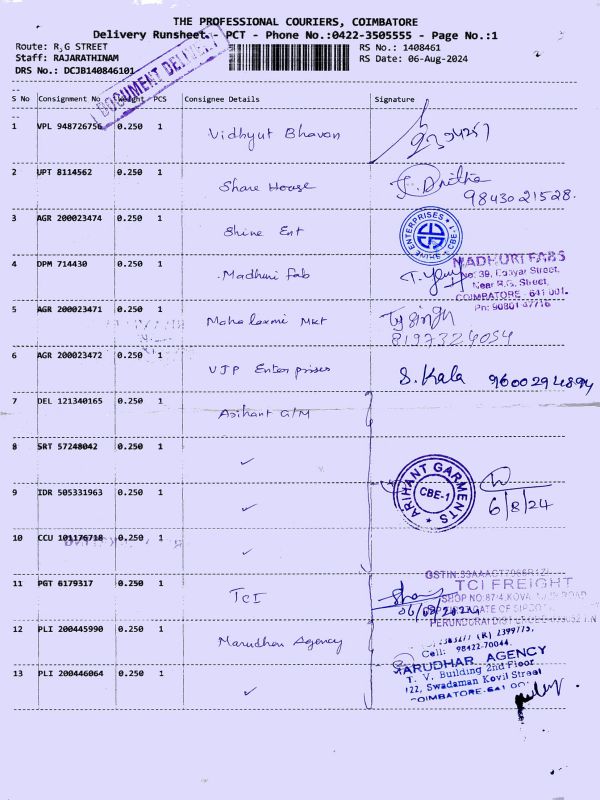 THE PROFESSIONAL COURIERS, COIMBATORE
Delivery Runsheet - PCT - Phone No.:0422-3505555 - Page No.:1
Route: R,G STREET
RS No.: 1408461
Staff: RAJARATHINAM
RS Date: 06-Aug-2024
DRS No.: DCJB140846101
DOCUMENT DELIVERY
S No Consignment No Weight PCS Consignee Details Signature
1 VPL 948726756 0.250 1 Vidhyut Bhavan
2 UPT 8114562 0.250 1 Share House
9843021528.
3 AGR 200023474 0.250 1 Shine Ent
SHINE ENTERPRISES CBE-1
4 DPM 714430 0.250 1 Madhuri fab
MADHURI FABS
No: 39, Street,
Near R.G. Street,
COIMBATORE - 641 001.
5 AGR 200023471 0.250 1 Mahalaxmi Mkt
8197324054
6 AGR 200023472 0.250 1 VJP Enterprises S. Kala 9600294894
7 DEL 121340165 0.250 1 Arihant G/M
8 SRT 57248042 0.250 1 ✓
9 IDR 505331963 0.250 1 ✓
ARIHANT GARMENTS CBE-1
6/8/24
10 CCU 101176718 0.250 1 ✓
11 PGT 6179317 0.250 1 TCI
TCI FREIGHT
12 PLI 200445990 0.250 1 Marudhar Agency
Cell: 98422-70044
MARUDHAR AGENCY
T. V. Building 2nd Floor
122, Swadaman Kovil Street
COIMBATORE-641 001
13 PLI 200446064 0.250 1 ✓